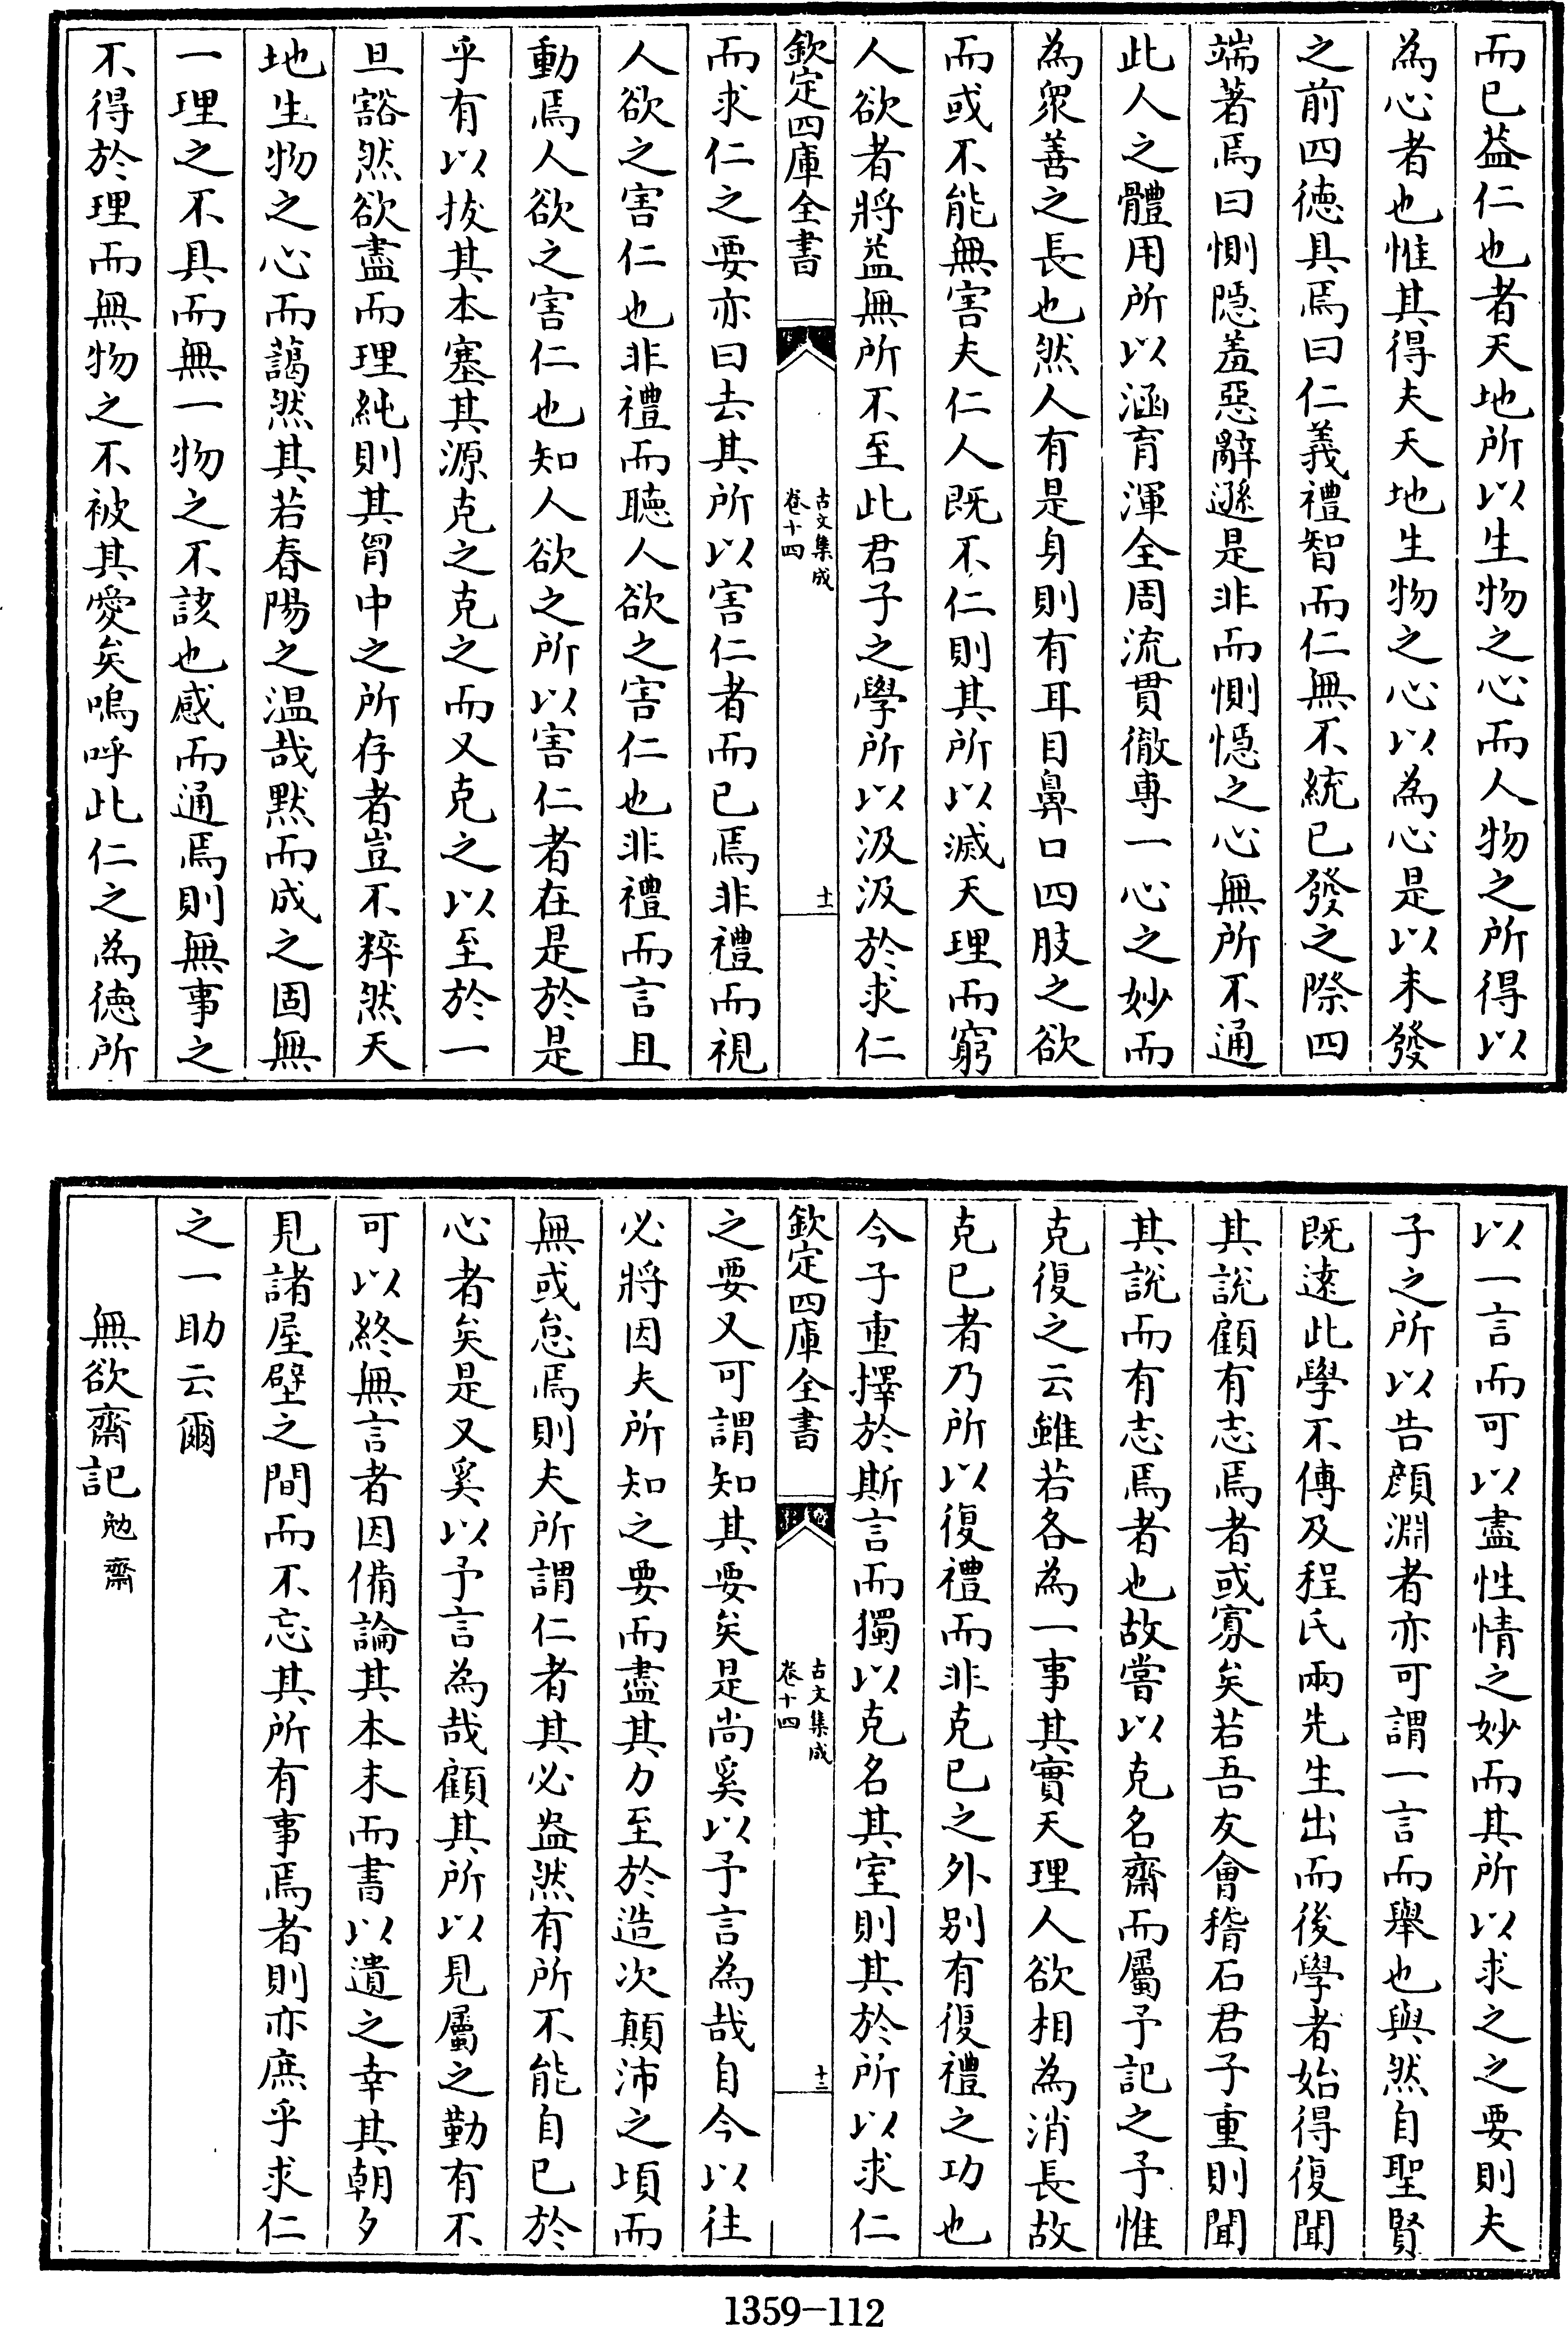 而已葢仁也者天地所以生物之心而人物之所得以
為心者也惟其得夫天地生物之心以為心是以未發
之前四徳具焉曰仁義禮智而仁無不統已發之際四
端著焉曰惻隠羞惡辭遜是非而惻隠之心無所不通
此人之體用所以涵育渾全周流貫徹専一心之妙而
為衆善之長也然人有是身則有耳目鼻口四肢之欲
而或不能無害夫仁人既不仁則其所以滅天理而窮
人欲者將益無所不至此君子之學所以汲汲於求仁
欽定四庫全書
古文集成
卷十四
十二
而求仁之要亦曰去其所以害仁者而已焉非禮而視
人欲之害仁也非禮而聴人欲之害仁也非禮而言且
動焉人欲之害仁也知人欲之所以害仁者在是於是
乎有以拔其本塞其源克之克之而又克之以至於一
旦豁然欲盡而理純則其胷中之所存者豈不粹然天
地生物之心而藹然其若春陽之温哉黙而成之固無
一理之不具而無一物之不該也感而通焉則無事之
不得於理而無物之不被其愛矣嗚呼此仁之為徳所
以一言而可以盡性情之妙而其所以求之之要則夫
子之所以告顔淵者亦可謂一言而舉也與然自聖賢
既逺此學不傳及程氏兩先生出而後學者始得復聞
其說顧有志焉者或寡矣若吾友會稽石君子重則聞
其說而有志焉者也故嘗以克名齋而屬予記之予惟
克復之云雖若各為一事其實天理人欲相為消長故
克已者乃所以復禮而非克已之外别有復禮之功也
今子重擇於斯言而獨以克名其室則其於所以求仁
欽定四庫全書
古文集成
卷十四
十三
之要又可謂知其要矣是尚奚以予言為哉自今以往
必將因夫所知之要而盡其力至於造次顛沛之頃而
無或怠焉則夫所謂仁者其必盎然有所不能自已於
心者矣是又奚以予言為哉顧其所以見屬之勤有不
可以終無言者因備論其本末而書以遺之幸其朝夕
見諸屋壁之間而不忘其所有事焉者則亦庶乎求仁
之一助云爾
無欲齋記 勉齋
1359-112